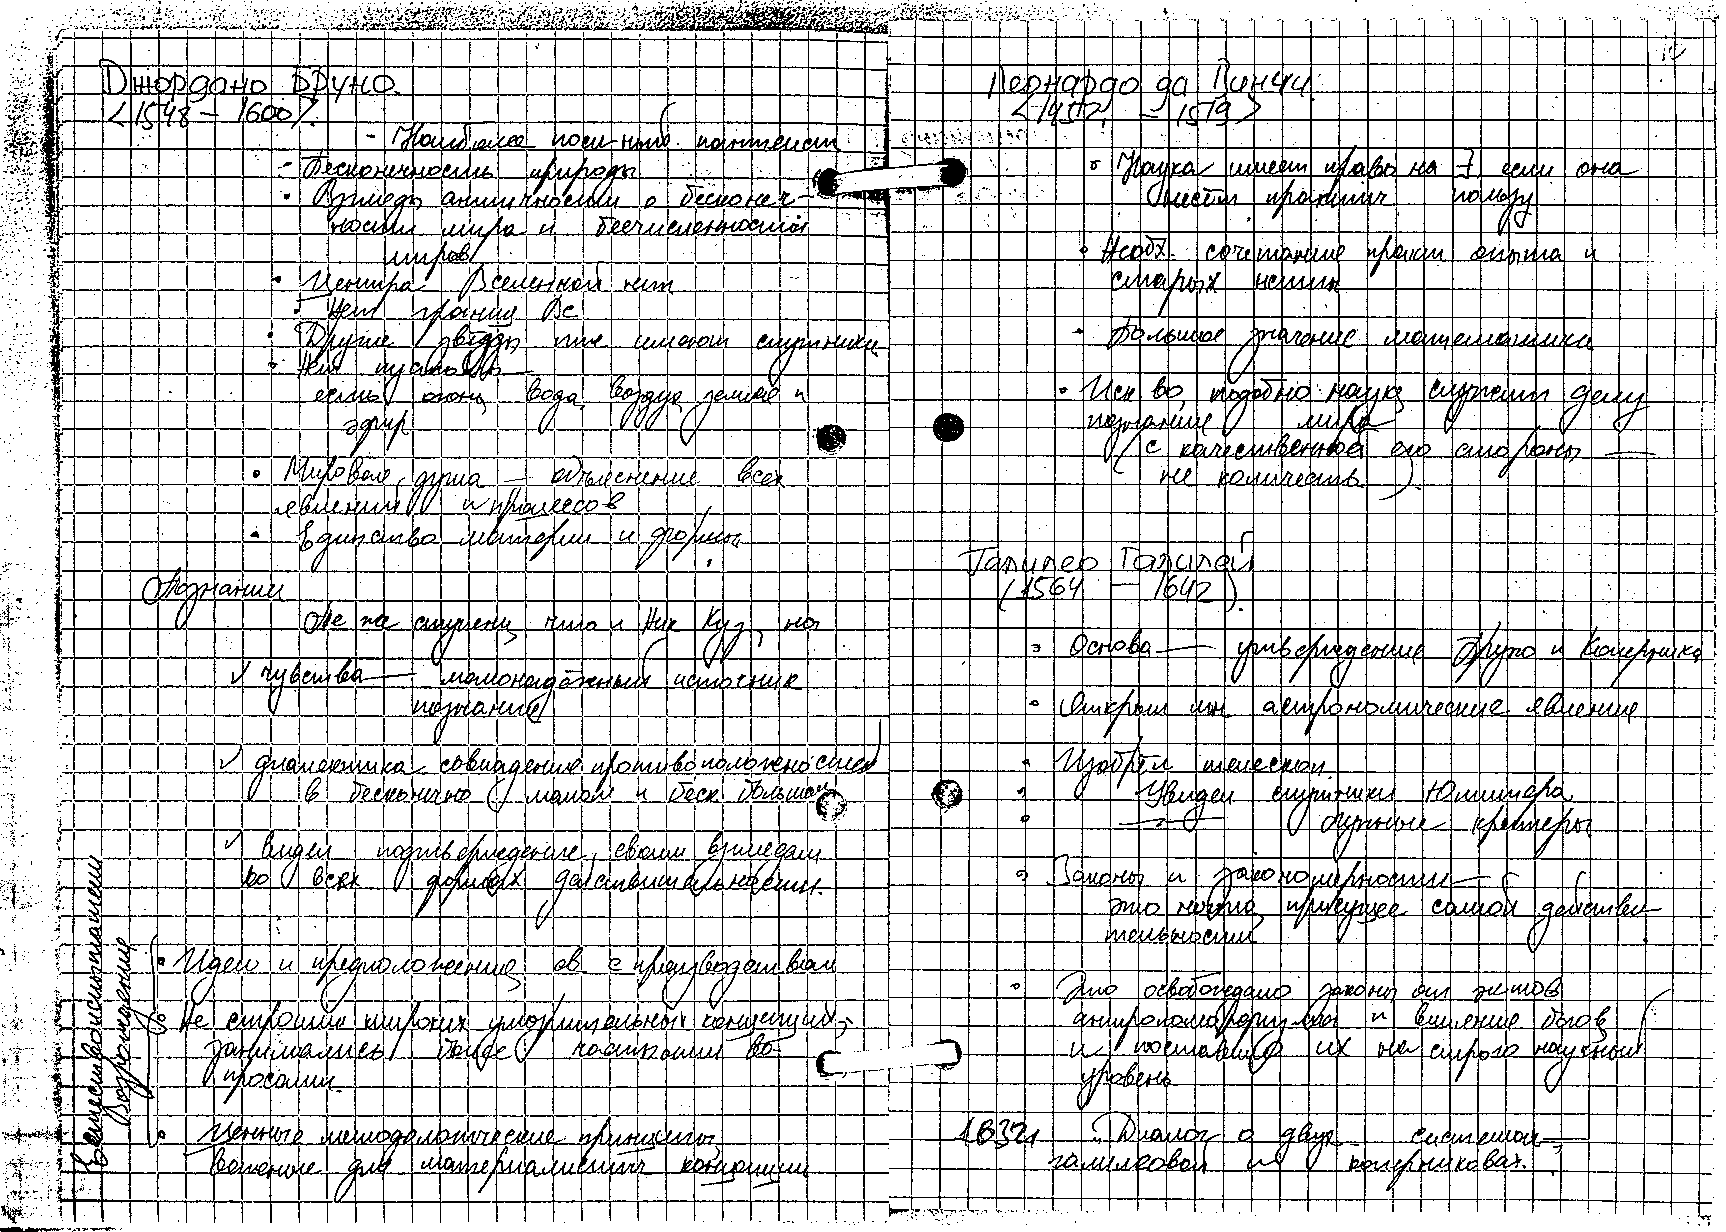 Джордано Бруно.
(1548 – 1600).
- Наиболее посл-ный пантеист
- Бесконечность природы
• Взгляды античности о бесконеч-
ности мира и бесчисленности
миров
• Центра Вселенной нет
• Нет границ Вс
• Другие звёзды тже имеют спутники
• Нет пустоты –
есть огонь, вода, воздух, земля и
эфир
• Мировая душа – объяснение всех
явлений и процессов
• Единство материи и формы
Познание
Те же ступени, что и Ник Куз, но
✓ чувства – малонадёжный источник
познания
✓ диалектика – совпадение противоположностей
в бесконечно малом и беск. большом
✓ видел подтверждение своим взглядам
во всех формах действительности.
Естествоиспытатели
Возрождения
• Идеи и предположения св. с производством
• Не строили широких умозрительных концепций,
занимались более частными во-
просами.
• Ценные методологические принципы,
важные для материалистич концепции
Леонардо да Винчи.
(1452 – 1519)
• Наука имеет право на ∃, если она
несёт практич пользу
• Необх. сочетание практ опыта и
старых истин
• Большое значение математики
• Иск-во, подобно науке, служит делу
познания мира
(с качественной его стороны –
не количеств.)
Галилео Галилей
(1564 – 1642).
• Основа – утверждение Бруно и Коперника
• Открыл мн. астрономические явления
• Изобрёл телескоп.
• Увидел спутники Юпитера
• —"— лунные кратеры
• Законы и закономерности –
это нечто, присущее самой действи-
тельности
• Это освобождало законы от
антропоморфизма и влияния богов
и поставило их на строго научный
уровень
1632г. "Диалог о двух системах –
птолемеевой и коперниковой".